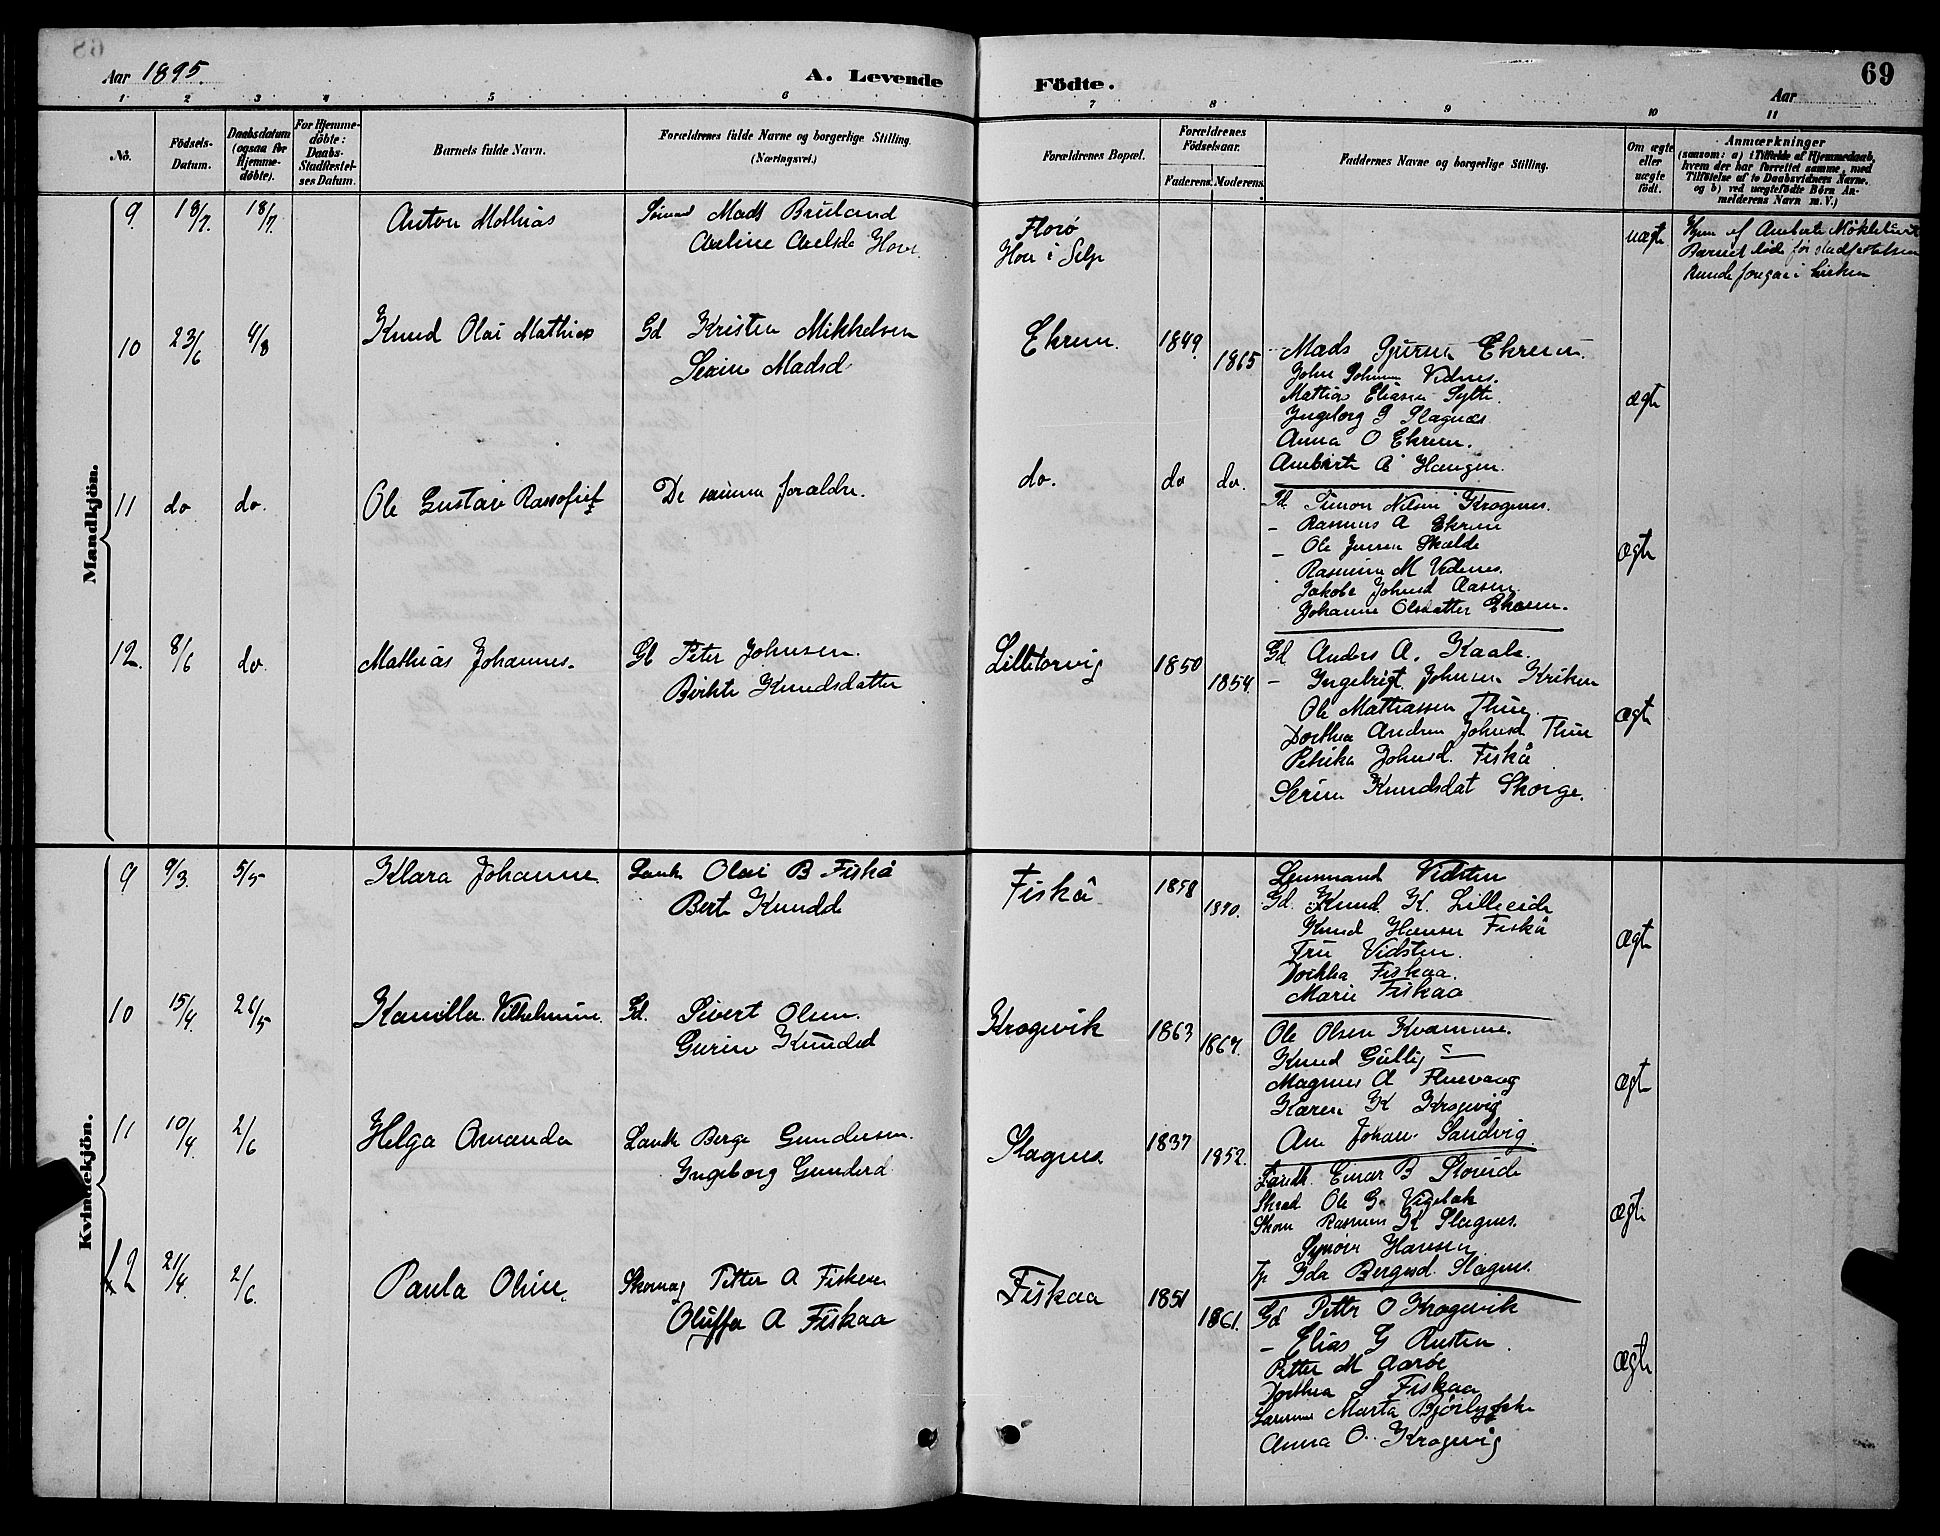 Aar 1895.
A. Levende
Födte.
Aar
69
1 2 3 4 5 6 7 8 9 10 11
No.
Födsels-Datum.
Daabsdatum (ogsaa for Hjemmedöbte).
For Hjemmedöbte: Daabs-Stadfæstelses Datum.
Barnets fulde Navn.
Forældrenes fulde Navne og borgerlige Stilling. (Næringsvei.)
Forældrenes Bopæl.
Forældrenes Födselsaar.
Faderens. Moderens.
Faddernes Navne og borgerlige Stilling.
Om ægte eller uægte födt.
Anmærkninger
(saasom: a) i Tilfælde af Hjemmedaab, hvem der har forrettet samme, med Tilföielse af to Daabsvidners Navne, og b) ved uægtefödte Börn Anmelderens Navn m. V.)
Mandkjön.
9 18/7. 18/7 Anton Mathias
Mads Bruland
Hove
Florø
Hove i Selje
uægte
10 23/6 4/8 Knud Olai Mathias
Gd Kristen Mikkelsen
Madsd
Ekrem. 1849. 1865
Mads Ekrem
John Vidnes.
Mathias Eliasen Sylte.
Ingeborg P Slagnæs
Anna O Ekrem.
A Haugen.
ægte
11 do do. Ole Gustav
De samme forældre.
do. do do.
Gd. Simon Nilsen Krognes.
- Rasmus A Ekrem
- Ole Jensen
M Vidnes.
Jakobe Johnsd Aasen
Johanne Olsdatter Ekrem.
ægte
12. 8/6 do. Mathias Johannes.
Gd Peter Johnsen.
Birte Knudsdatter
Lilletorvig 1850 1854.
Gd Anders A. Kaale.
- Ingebrigt Johnsen Kriken
Ole Mathiassen Thue
Dorthea Andrea Johnsd Thue
Petrika Johnsd. Fiskå
Serine Knudsdat Skorge.
ægte
Kvindekjön.
9 9/3. 5/5 Klara Johanne
Landh Olai B Fiskå
Berte Knudsd
Fiskå 1858 1870.
Lensmand Vidsten
Gd. Knud K. Lilleeide
Knud Hansen Fiskå
Fru Vidsten.
Dorthea Fiskaa.
Marie Fiskaa
ægte
10 15/4. 26/5 Kamilla Vilhelmine.
Gd. Sivert Olsen
Gurine Knudsd
Krogevik 1863 1867.
Ole Olsen Kvamme.
Knud Gullig
Magnus A
Karen K Krogvig
Ane Johan. Sandvig
ægte
11 10/4. 2/6 Helga Amanda
Landh Berge Gundersen.
Ingeborg Gunderd
Slagnes 1837 1852.
Landh. Einar B Storeide
Ole G.
Rasmus K Slagnes.
Synøve Hansen
Ida Bergesd. Slagnes.
ægte.
12 21/4. 2/6. Paula Oline.
Skomag Petter A Fiskaa
Oluffa A Fiskaa
Fiskaa 1851 1861.
Gd Petter O Krogevik
- Elias G Rusten
Petter M Aarøe
Dorthea S Fiskaa
Marta
Anna O. Krogevig
ægte